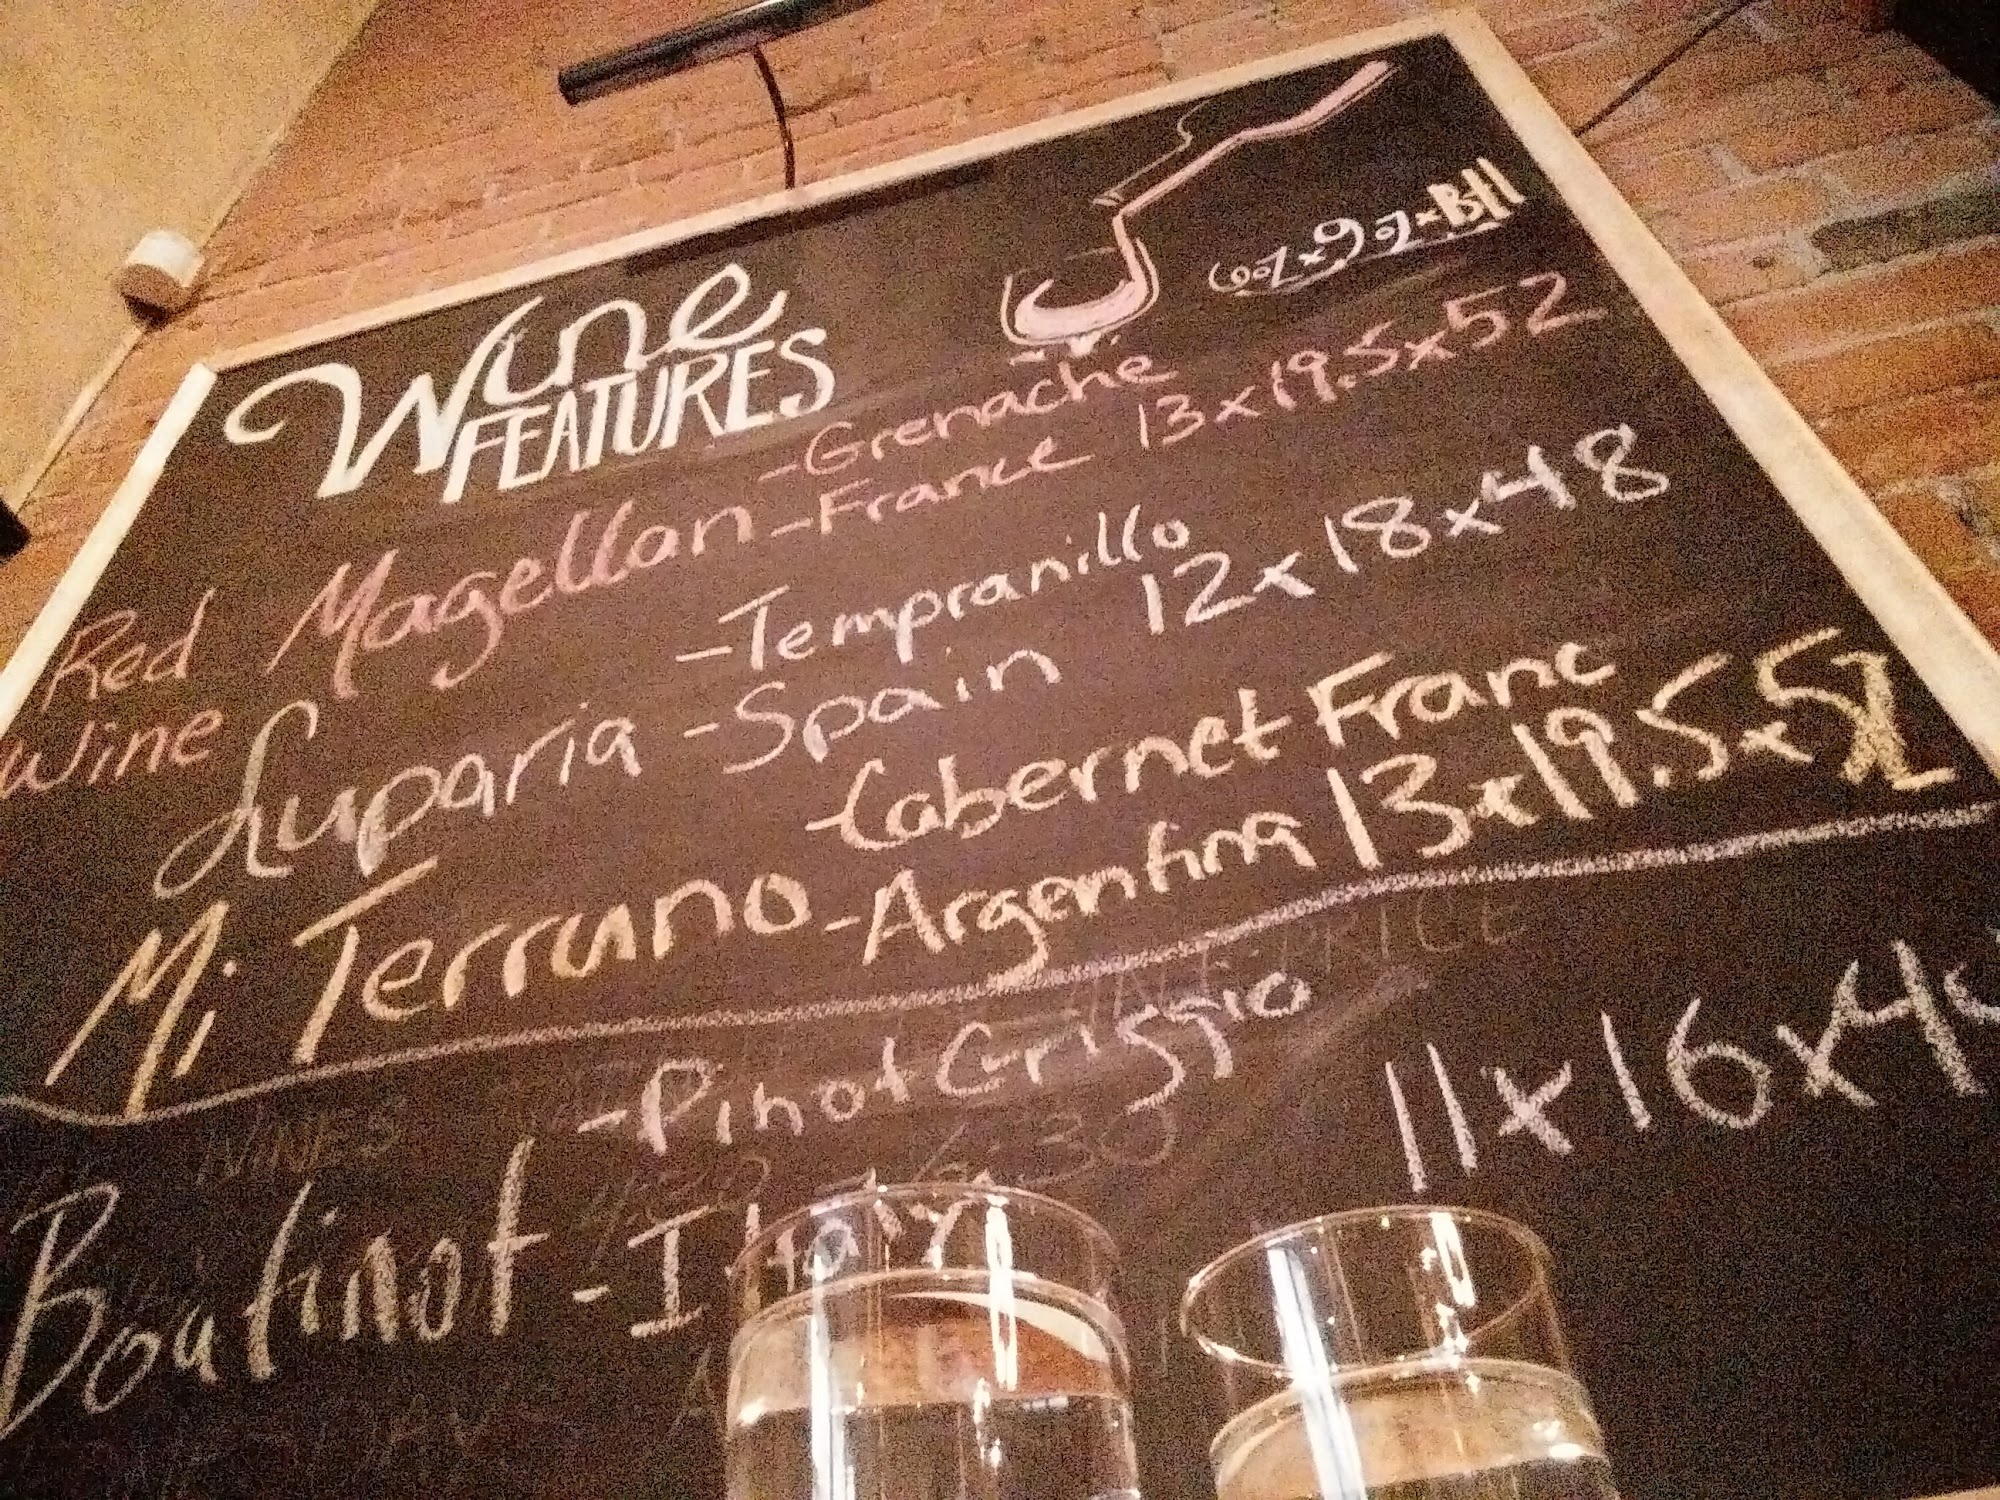 Wine
FEATURES
6oz x 9oz x Btl
Red Wine
Magellan -Grenache
-France 13x19.5x52
Luparia -Tempranillo
-Spain 12x18x48
Mi Terruno -Cabernet Franc
-Argentina 13x19.5x52
Boutinot -Pinot Griggio
-Italy 11x16x4